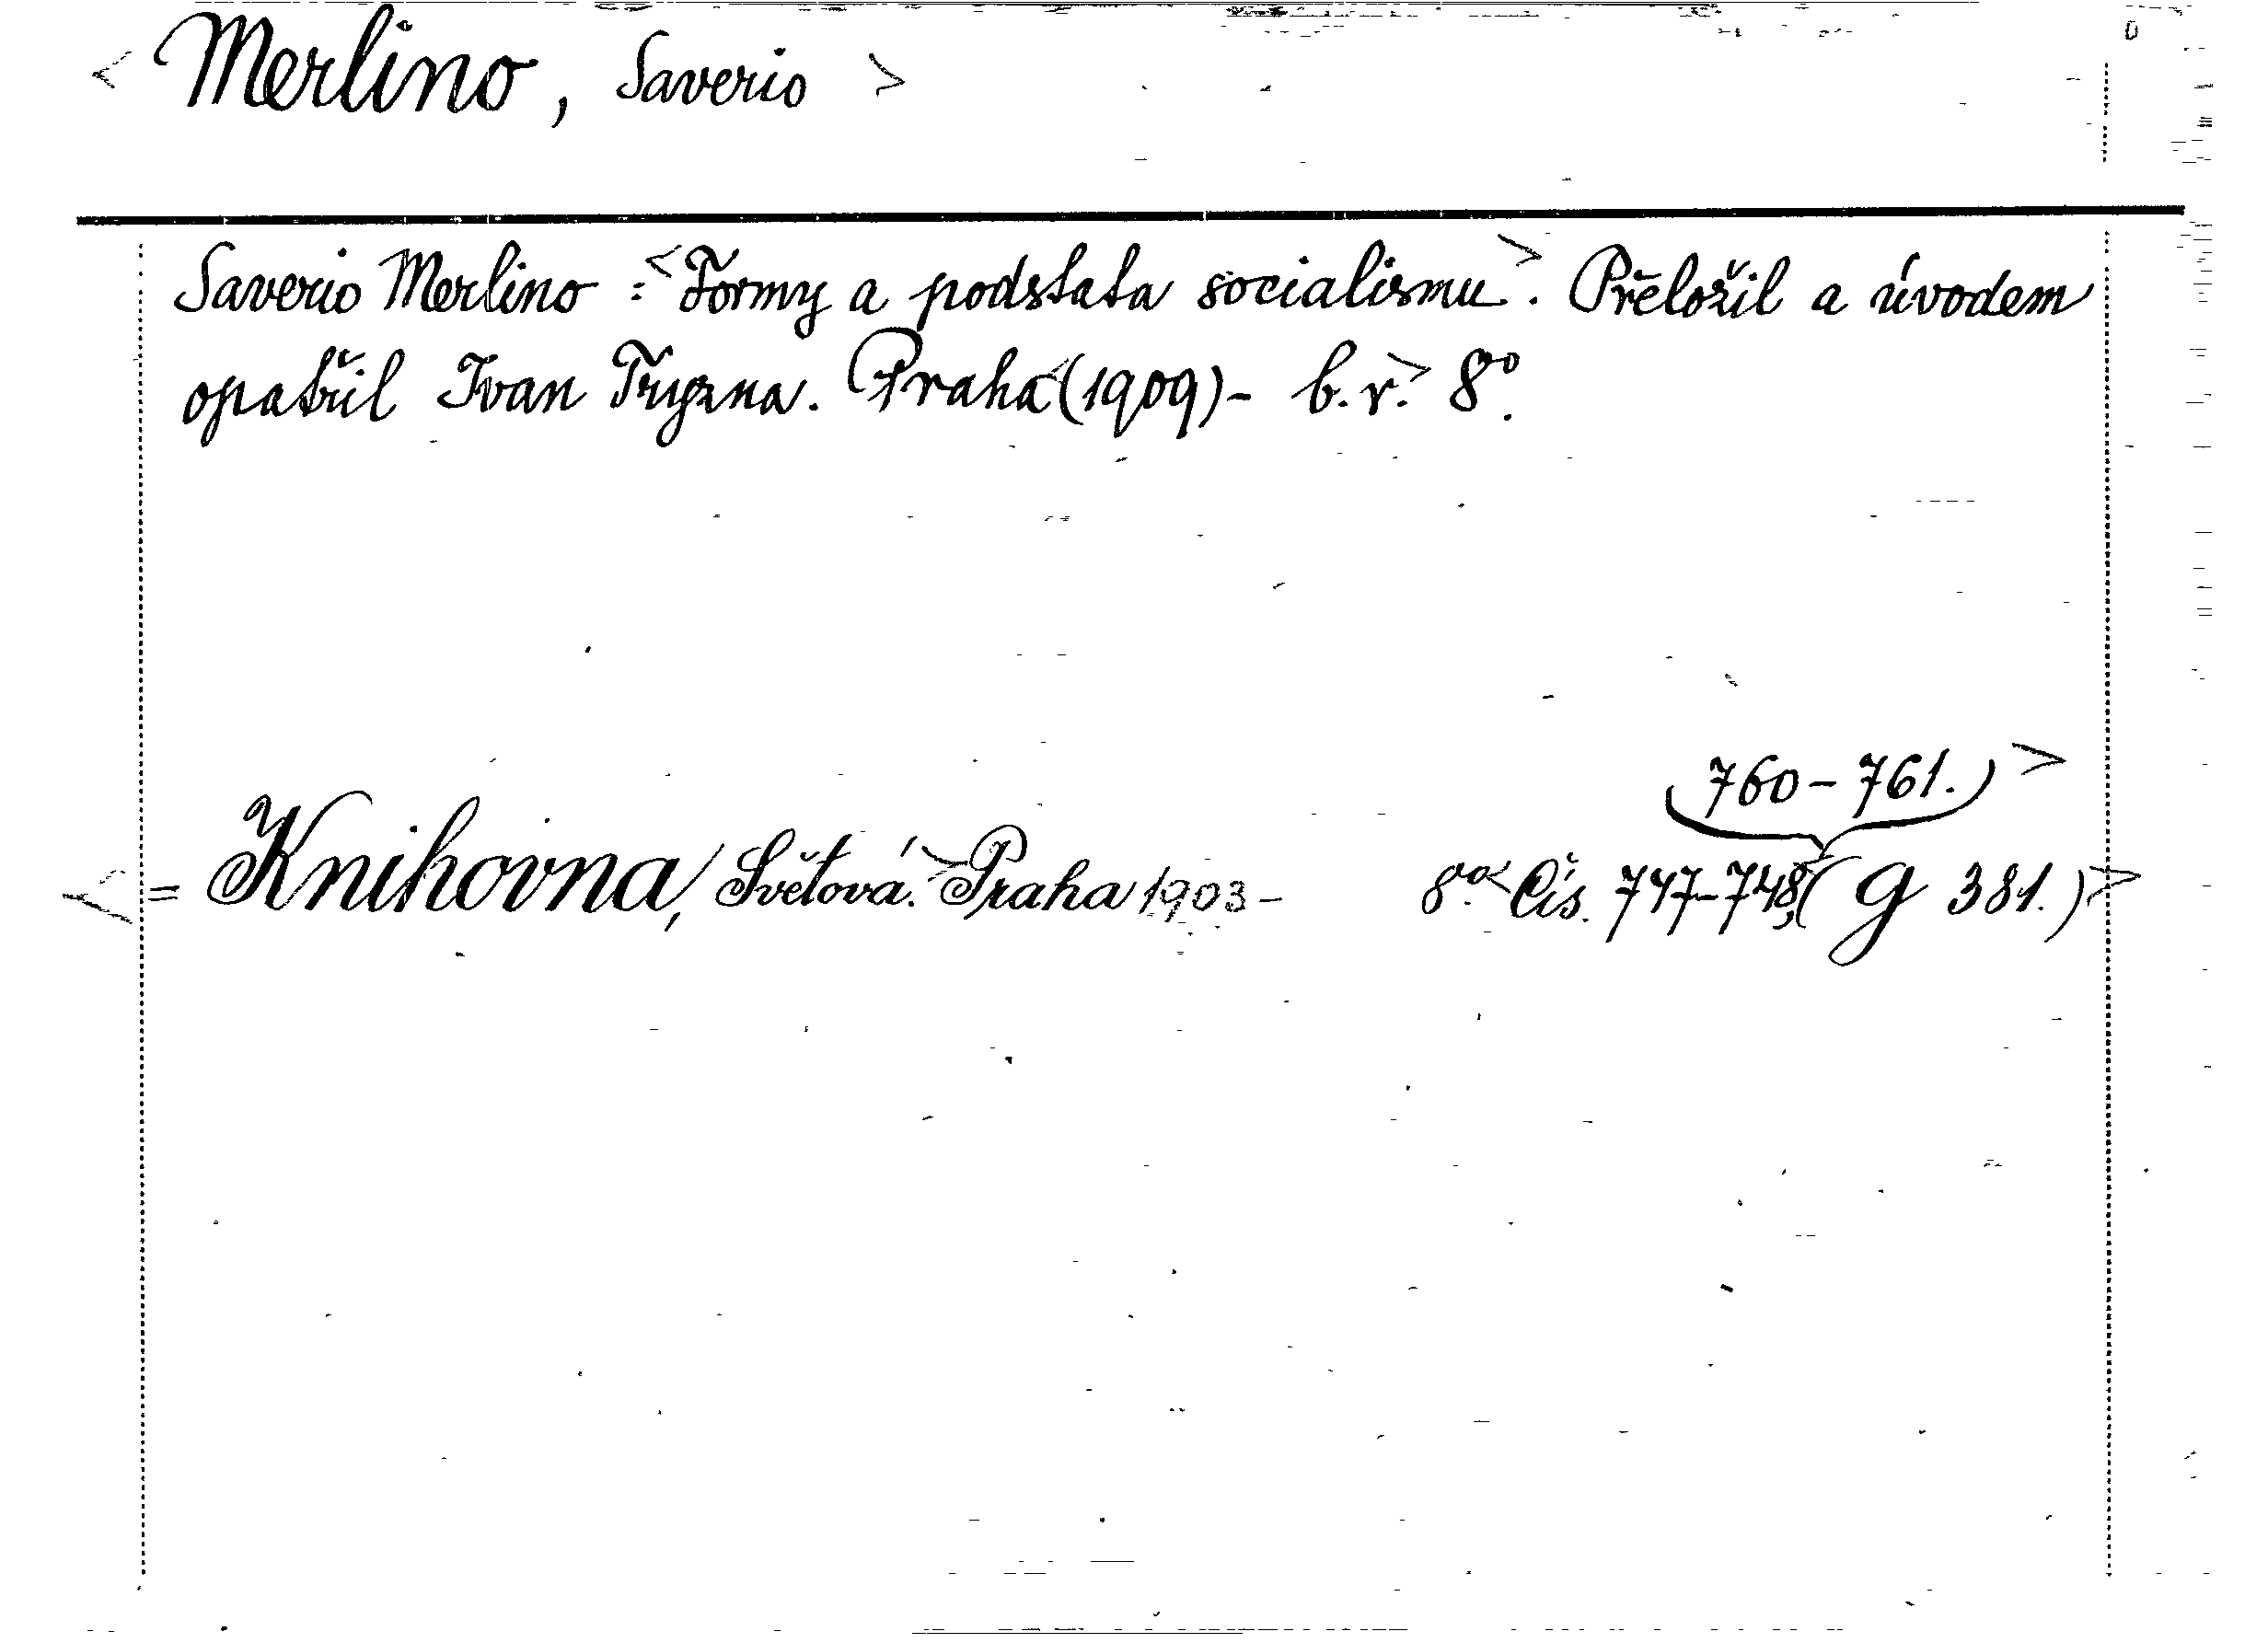 < Merlino, Saverio >
Saverio Merlino : <Formy a podstata socialismu>. Přeložil a úvodem
opatřil Ivan Tryzna. Praha <(1909) - b. r.> 8°.
760 - 761.) >
< = Knihovna, Světová. > Praha 1903 - 8°. < Čís. 747-748, ( G 381. ) >